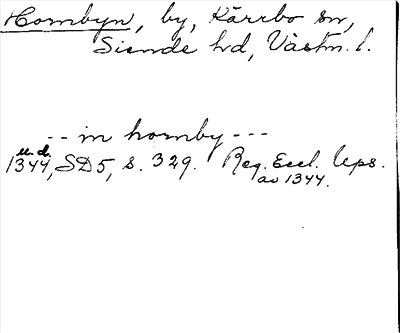 Hornbyn, by, Kärrbo sn,
Siende hd, Västm. l.
-- in hornby ---
u.d.
1344, SD5, s. 329. Reg. Eccl. Ups.
av 1344.